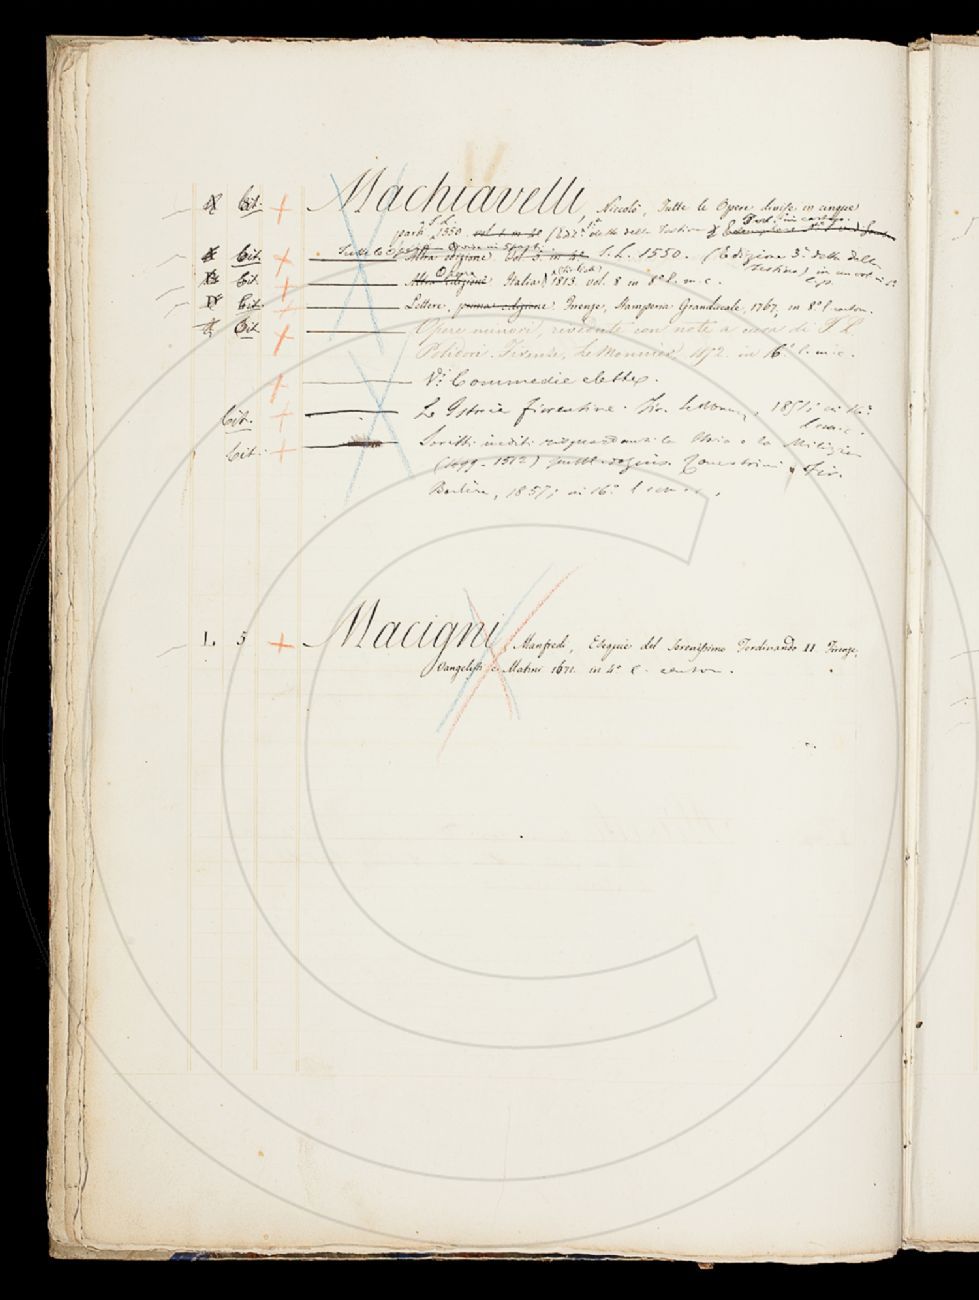 Cit. Machiavelli Niccolò, Tutte le Opere divise in cinque
parti S. L. 1550. vol. 1 in 4° (Ediz.e 1a detta della Testina
Cit. Tutte le Opere Altra edizione Vol 5. in 4° S. L. 1550. (Edizione 3a detta della
Testina) in un vol. in 4°
Cit. Altra edizione Opere Italia, 1813. vol. 8 in 8° l. m. c.
Cit. Lettere, prima edizione Firenze, Stamperia Granducale, 1767, in 8° l. carton.
Cit. Opere minori, rivedute con note a cura di F. L.
Polidori. Firenze, Le Monnier, 1852. in 16° l. m. c.
Vi Commedie
Cit. Le Istorie fiorentine. Fir. Le Monnier, 1851; in 16°
l. m. c.
Cit. Scritti inediti risguardanti la Storia e la Milizia
(1499-1512) Canestrini, Fir.
Barbèra, 1857; in 16°
L. 5 Macigni, Manfredi, Esequie del Serenissimo Ferdinando II Firenze,
Vangelisti e Matini 1671. in 4° l. carton.